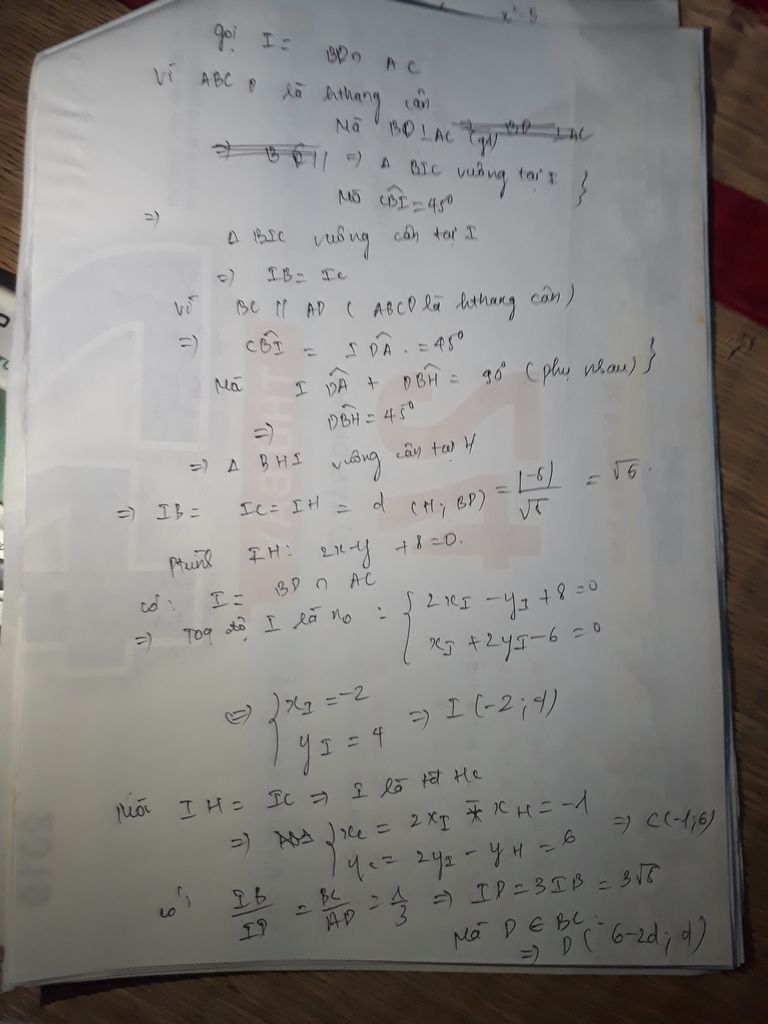 x²-5
gọi I =
BD ∩ AC
Vì ABCD là hthang cân
Mà BD ⊥ AC (gt)
=> Δ BIC vuông tại I }
Mà CB̂I = 45°
=>
Δ BIC vuông cân tại I
=> IB = IC
Vì BC // AD ( ABCD là hthang cân )
=> CB̂I = ID̂A = 45°
Mà ID̂A + DB̂H = 90° (phụ nhau) }
=> DB̂H = 45°
=> Δ BHI vuông cân tại H
=> IB = IC = IH = d (H; BD) = |-5|/√5 = √5.
Ptrình IH: 2x-y +8=0.
có: I = BD ∩ AC
=> Toạ độ I là no : { 2xI - yI + 8 = 0
xI + 2yI - 6 = 0
<=> { xI = -2
yI = 4 => I (-2; 4)
Mà IH = IC => I là tđ HC
=> { xC = 2xI - xH = -1
yC = 2yI - yH = 6 => C(-1;6)
có IB/ID = BC/AD = 1/3 => ID = 3IB = 3√5
Mà D ∈ BC:
=> D ( 6-2d; d)
2019